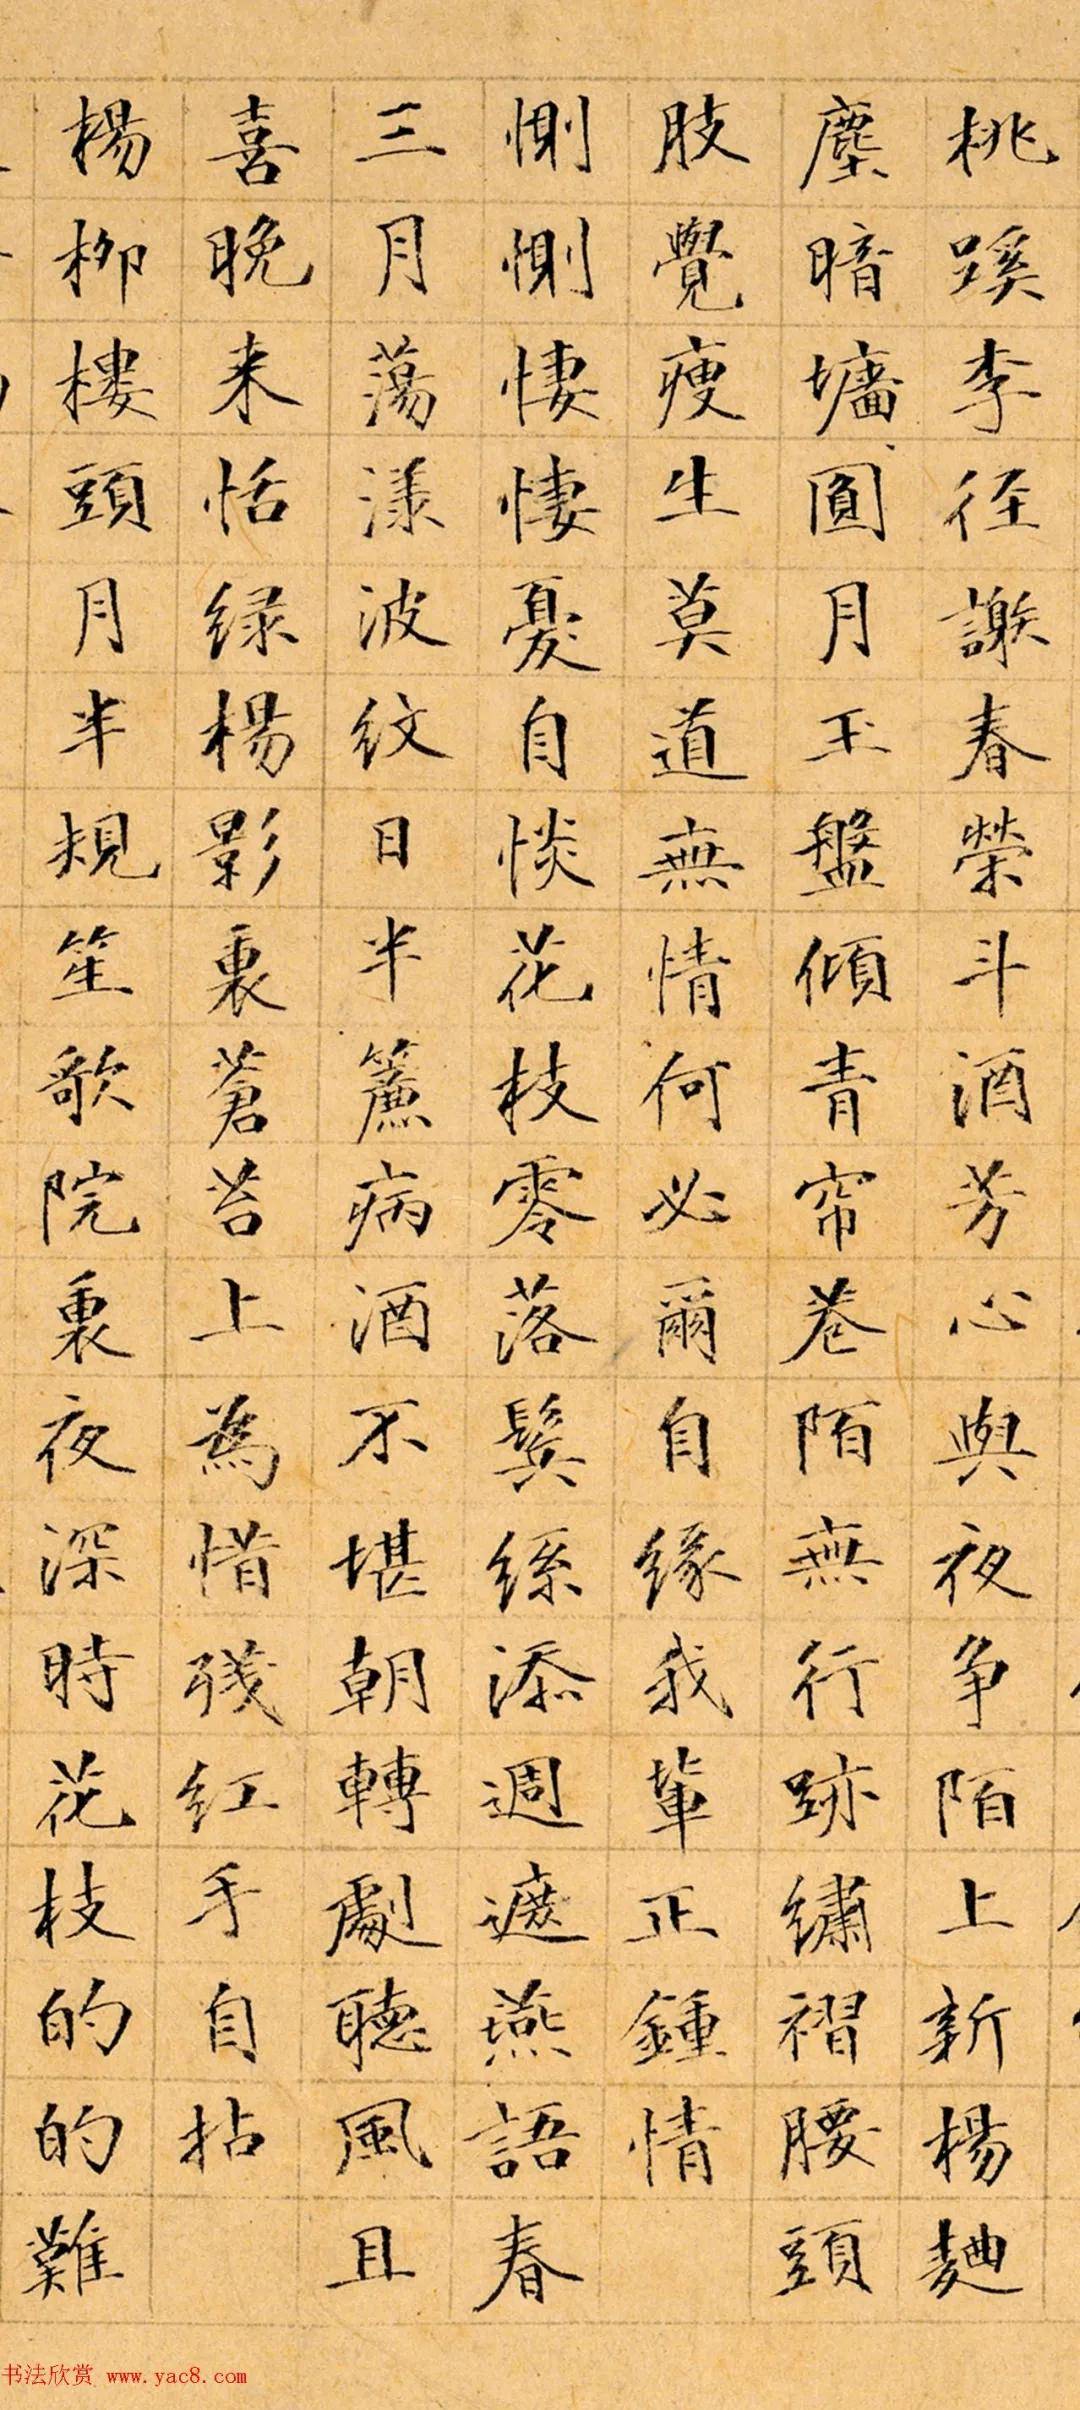 桃蹊李径謝春榮斗酒芳心與夜争陌上新楊麯
塵暗墻圓月玉盤傾青帘巷陌無行跡繡褶腰頭
肢覺瘦生莫道無情何必爾自緣我輩正鍾情
惻惻悽悽憂自惔花枝零落鬂絲添週遮燕語春
三月蕩漾波紋日半簾病酒不堪朝轉劇聽風且
喜晚来恬绿楊影裏蒼苔上為惜殘红手自拈
楊柳樓頭月半規笙歌院裏夜深時花枝的的難
书法欣赏 www.yac8.com